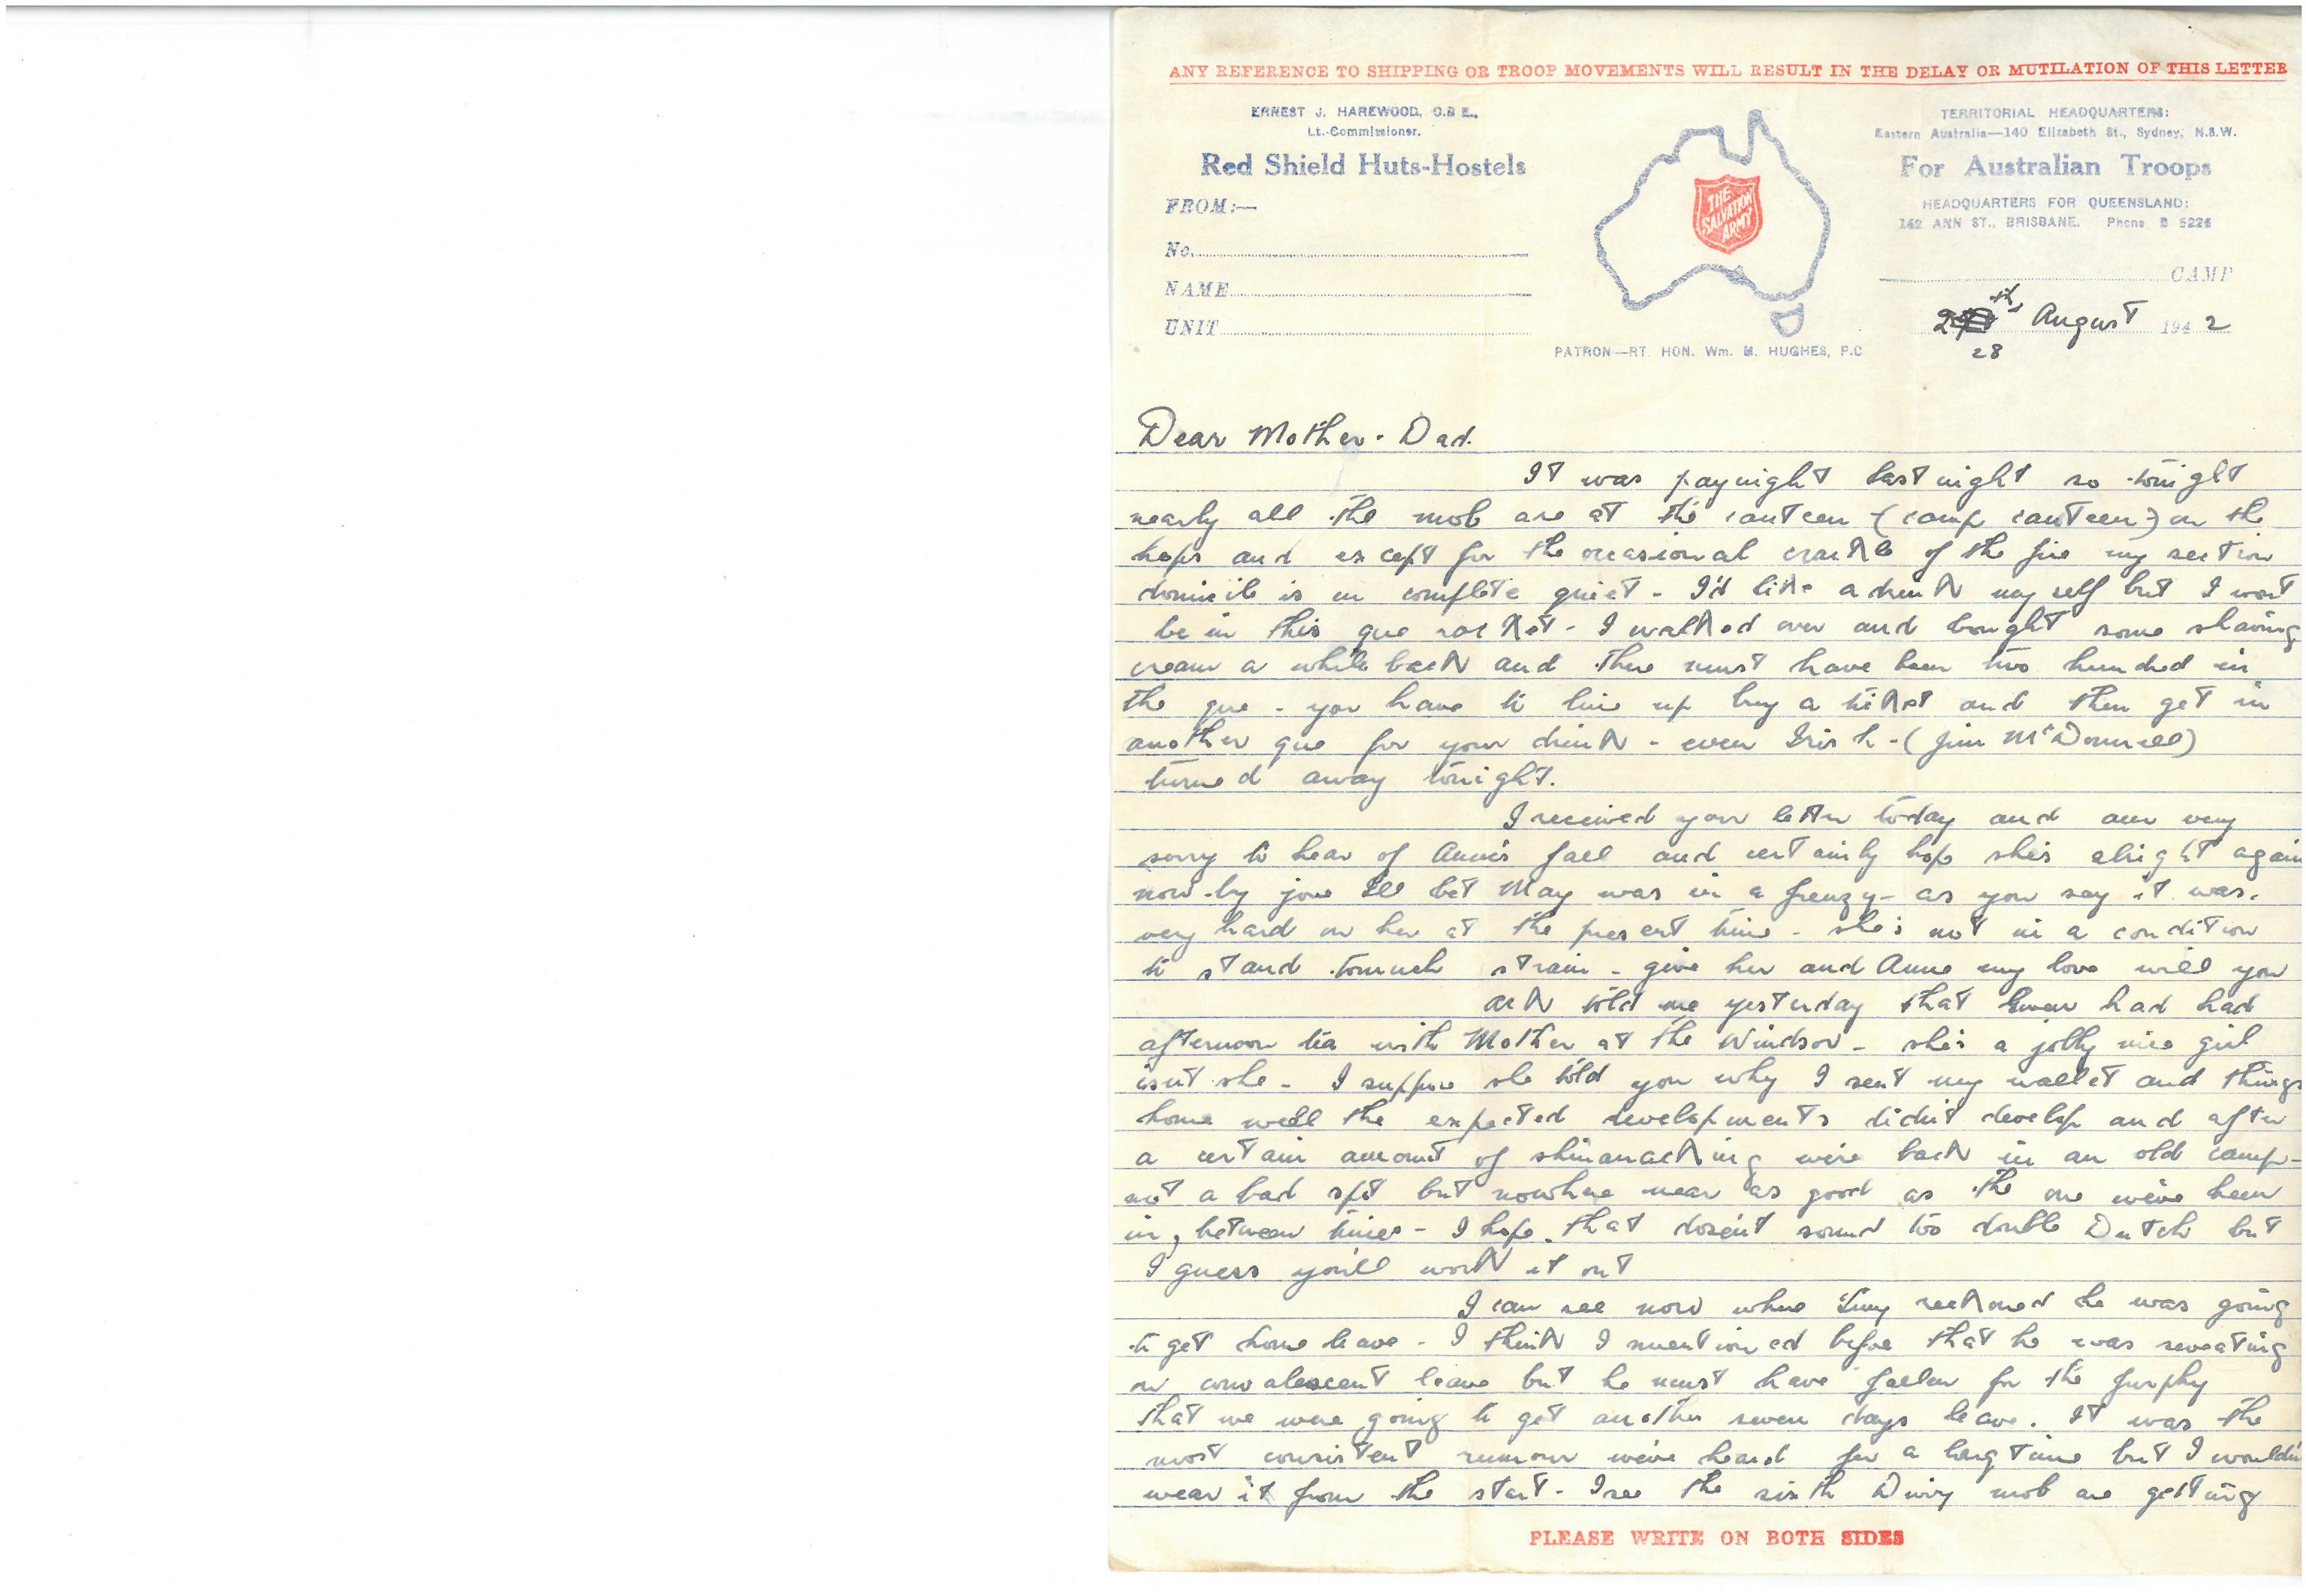 ANY REFERENCE TO SHIPPING OR TROOP MOVEMENTS WILL RESULT IN THE DELAY OR MUTILATION OF THIS LETTER
ERNEST J. HAREWOOD, O.B.E.,
Lt.-Commissioner.
Red Shield Huts-Hostels
FROM:—
No.
NAME
UNIT
THE
SALVATION
ARMY
PATRON—RT. HON. Wm. M. HUGHES, P.C
TERRITORIAL HEADQUARTERS:
Eastern Australia—140 Elizabeth St., Sydney, N.S.W.
For Australian Troops
HEADQUARTERS FOR QUEENSLAND:
142 ANN ST., BRISBANE. Phone B 5226
CAMP
th August 1942
28
Dear Mother - Dad.
It was paynight last night so tonight
nearly all the mob are at the canteen (camp canteen) on the
hops and except for the occasional crackle of the fire my section
domicile is in complete quiet - I'd like a drink myself but I wont
be in this que racket - I walked over and bought some shaving
cream a while back and there must have been two hundred in
the que - you have to line up buy a ticket and then get in
another que for your drink - even Irish - (Jim McDonnell)
turned away tonight.
I received your letter today and am very
sorry to hear of Anne's fall and certainly hope she's alright again
now - by jove I'll bet May was in a frenzy - as you say it was
very hard on her at the present time - she's not in a condition
to stand tomuch strain - give her and Anne my love will you
Ack told me yesterday that had had
afternoon tea with Mother at the Windsor - she's a jolly nice girl
isnt she - I suppose she told you why I sent my wallet and things
home well the expected developments didn't develop and after
a certain amount of shinanacking we're back in an old camp -
not a bad spot but nowhere near as good as the one we've been
in, between times - I hope that dosen't sound too double Dutch but
I guess you'll work it out
I can see now where reckoned he was going
to get home leave - I think I mentioned before that he was sweating
on convalescent leave but he must have fallen for the furphy
that we were going to get another seven days leave. It was the
most consistent rumour we've heard for a long time but I wouldn't
wear it from the start - I see the sixth Divvy mob are getting
PLEASE WRITE ON BOTH SIDES